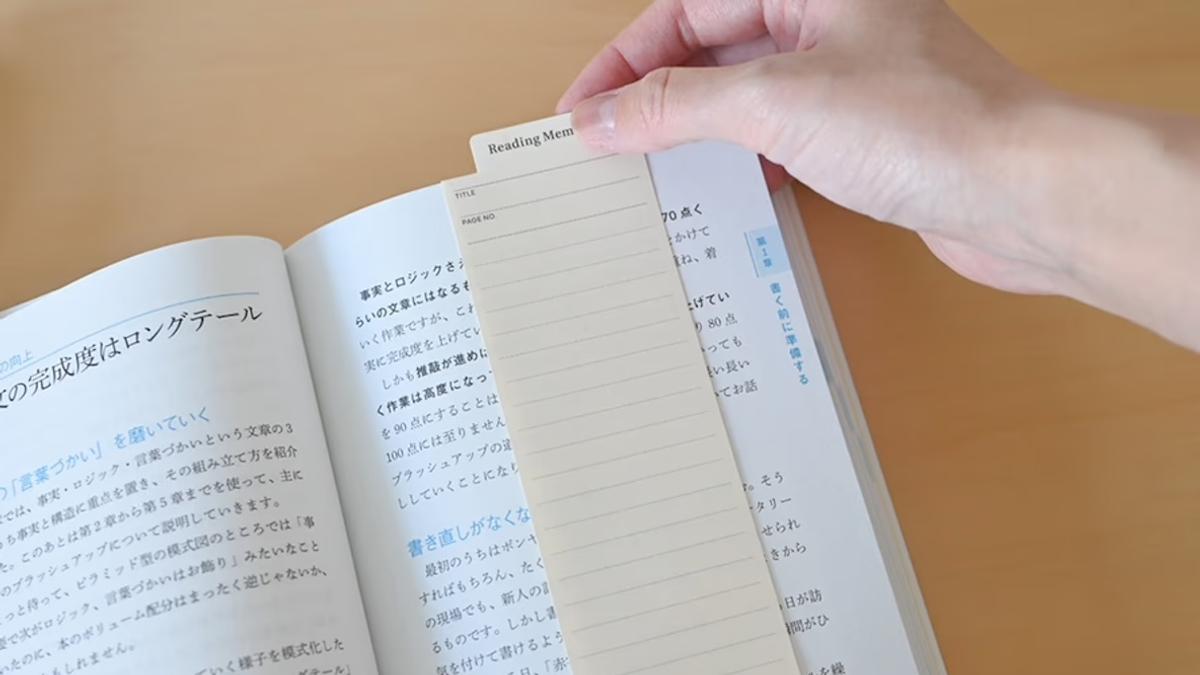 の向上
文の完成度はロングテール
「言葉づかい」を磨いていく
では、事実・ロジック・言葉づかいという文章の3
ち事実と構造に重点を置き、その組み立て方を紹介
た。このあとは第2章から第5章までを使って、主に
のブラッシュアップについて説明していきます。
っと待って、ピラミッド型の模式図のところでは「事
で次がロジック、言葉づかいはお飾り」みたいなこと
いたのに、本のボリューム配分はまったく逆じゃないか、
もしれません。
ていく様子を模式化した
ングテール」
Reading Mem
TITLE
PAGE NO.
事実とロジックさえ
らいの文章にはなるも
いく作業ですが、これ
実に完成度を上げてい
しかも推敲が進めば
く作業は高度になっ
を90点にすることは
100点には至りません
ブラッシュアップの道
ししていくことになり
書き直しがなくな
最初のうちはポンヤ
すればもちろん、たく
の現場でも、新人の記
るものです。しかし書
気を付けて書けるよう
る日、「赤
70点く
とかけて
重ね、着
上げてい
り80点
っても
い長い
いてお話
す。そう
タリー
せられ
きから
日が訪
瞬間がひ
を繰
第1章 書く前に準備する